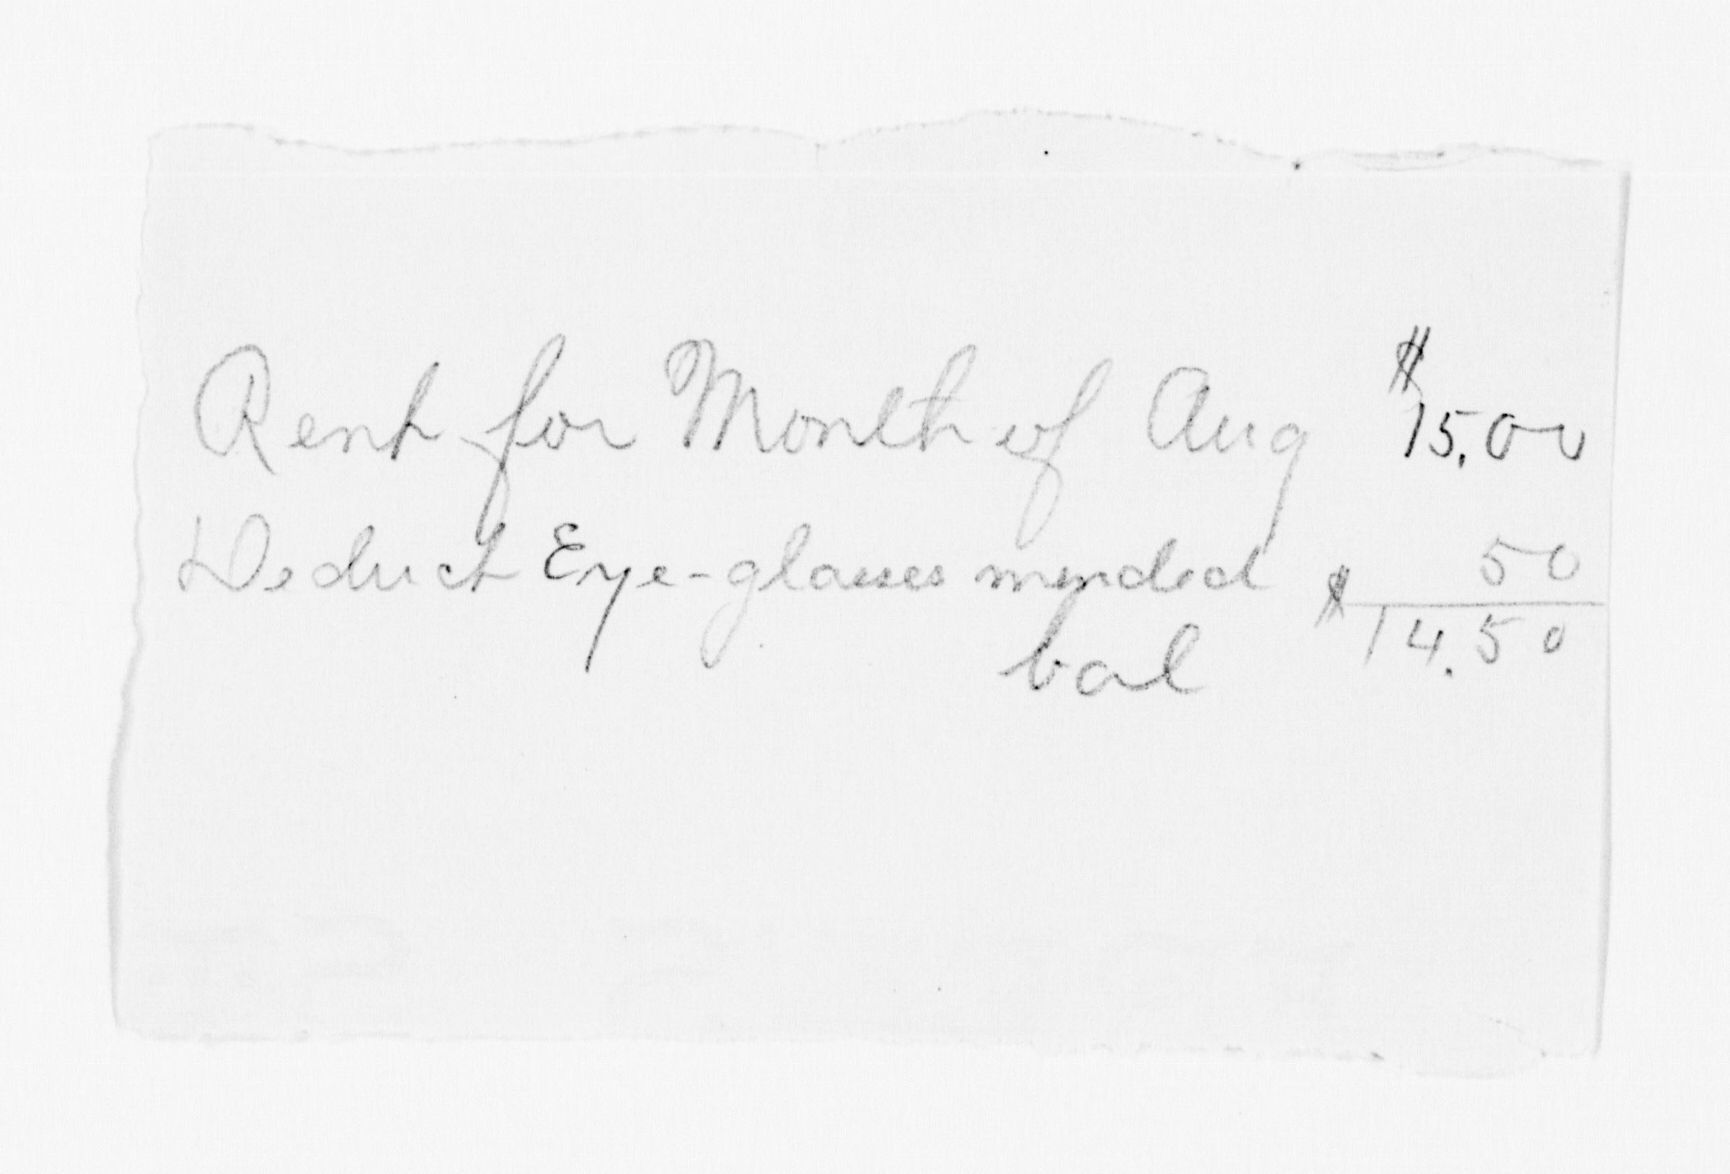 Rent for Month of Aug $15.00
Deduct Eye-glasses mended 50
bal $14.50